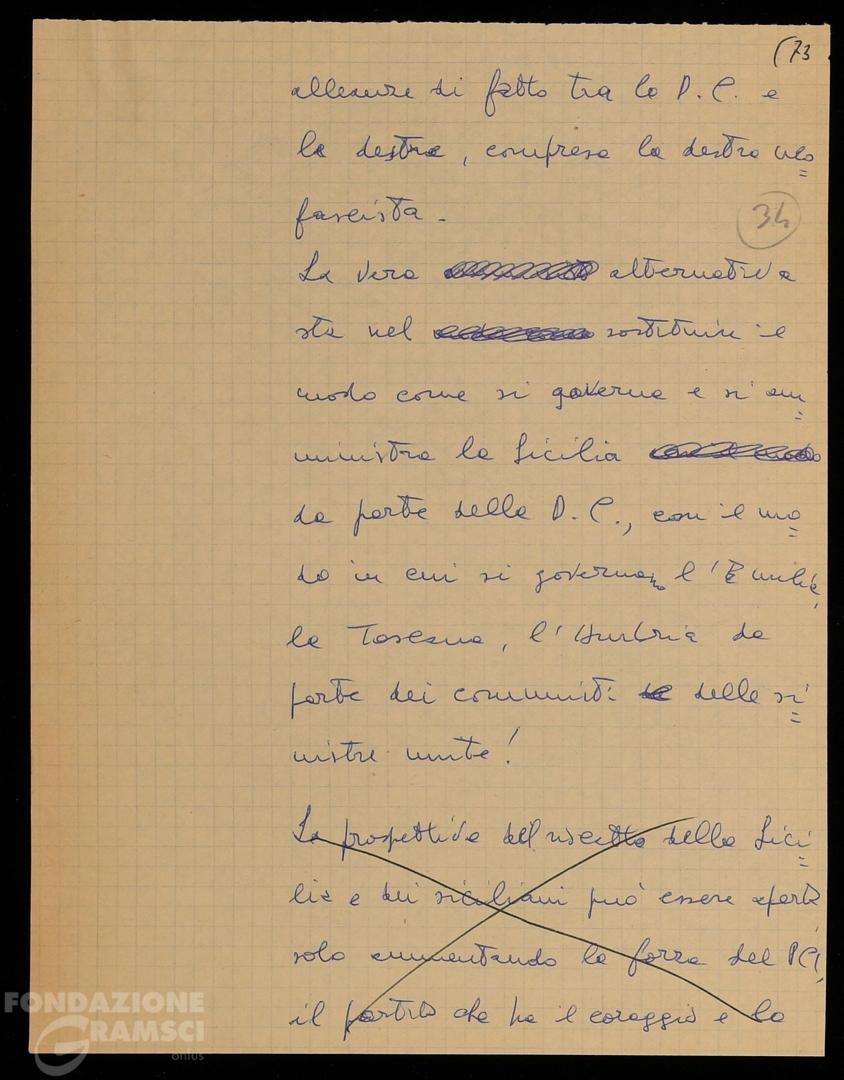 (73
alleanze di fatto tra la D.C. e
la destra, compresa la destra neo
34
fascista.
La vera alternativa
sta nel sostituire il
modo come si governa e si am
ministra la Sicilia
da parte della D.C., con il mo
do in cui si governano l'Emilia,
la Toscana, l'Umbria da
parte dei comunisti delle si
nistre unite!
La prospettiva del riscatto della Sici
lia e dei siciliani può essere aperta
solo aumentando la forza del PCI,
il partito che ha il coraggio e la
FONDAZIONE
GRAMSCI
onlus